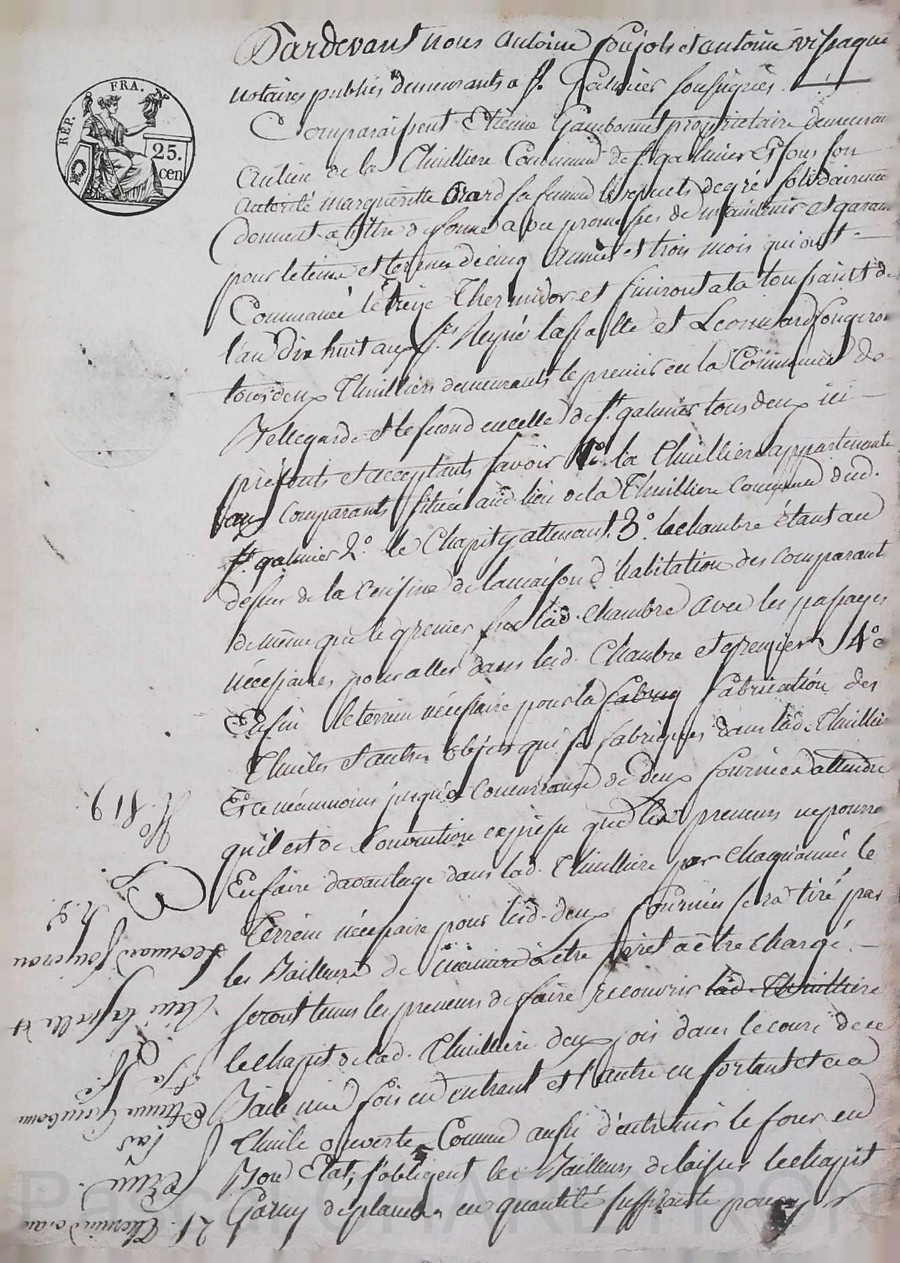 Pardevant nous antoine Poujols et antoine
notaires publics demeurants a St. Galmier soussignés.
RÉP. FRA.
25.
cen
Comparaissent Etienne proprietaire demeuran
au lieu de la Thuilliere Commune de St galmier Et sous son
autorité margueritte sa femme lesquels de gré solidairemen
donnent a titre de ferme avec promesses de maintenir et garan
pour le tems et terme de cinq années et trois mois qui ont
Commancé le treize Thermidor et finiront a la toussaint de
l'an dix huit aux Srs. lapalle et Leonnard fougerou
tous deux Thuilliers demeurants le premier en la Commune de
Bellegarde et le second en celle de St. galmier tous deux ici
présents et acceptants savoir 1o. la Thuilliere appartenante
aux comparants située audit lieu de la Thuilliere Commune dud.
St. galmier 2o. le Chapit y attenant. 3o. la chambre étant au
dessus de la Cuisine de la maison d'habitation des comparant
de même que le grenier sur lad. chambre avec les passages
nécessaires pour aller dans lesd. Chambre et grenier 4o
Enfin le terrein nécessaire pour la fabriq fabrication des
Thuiles et autres objets qui se fabriquent dans lad. Thuillie
Et ce neanmoins jusqu'a Concurrance de deux fournées attendu
qu'il est de Convention expresse que les preneurs ne pourro
En faire davantage dans lad. Thuilliere par Chaque année le
Terrein nécessaire pour lesd. deux fournées sera tiré par
les Bailleurs de maniere a etre pret a être chargé.
seront tenus les preneurs de faire recouvrir lad. Thuilliere
le chapit de lad. Thuilliere deux fois dans le cours de ce
Bail une fois en entrant et l'autre en sortant et ce a
Thuile ouverte Comme aussi d'entretenir le four en
Bon Etat, s'obligent les Bailleurs de laisser le chapit
Garny de planches en quantité suffisante pour y
No. 119
Leonnard fougerou
lapalle et
Etienne
21. Thermidor an
Pascal CHAREYRON